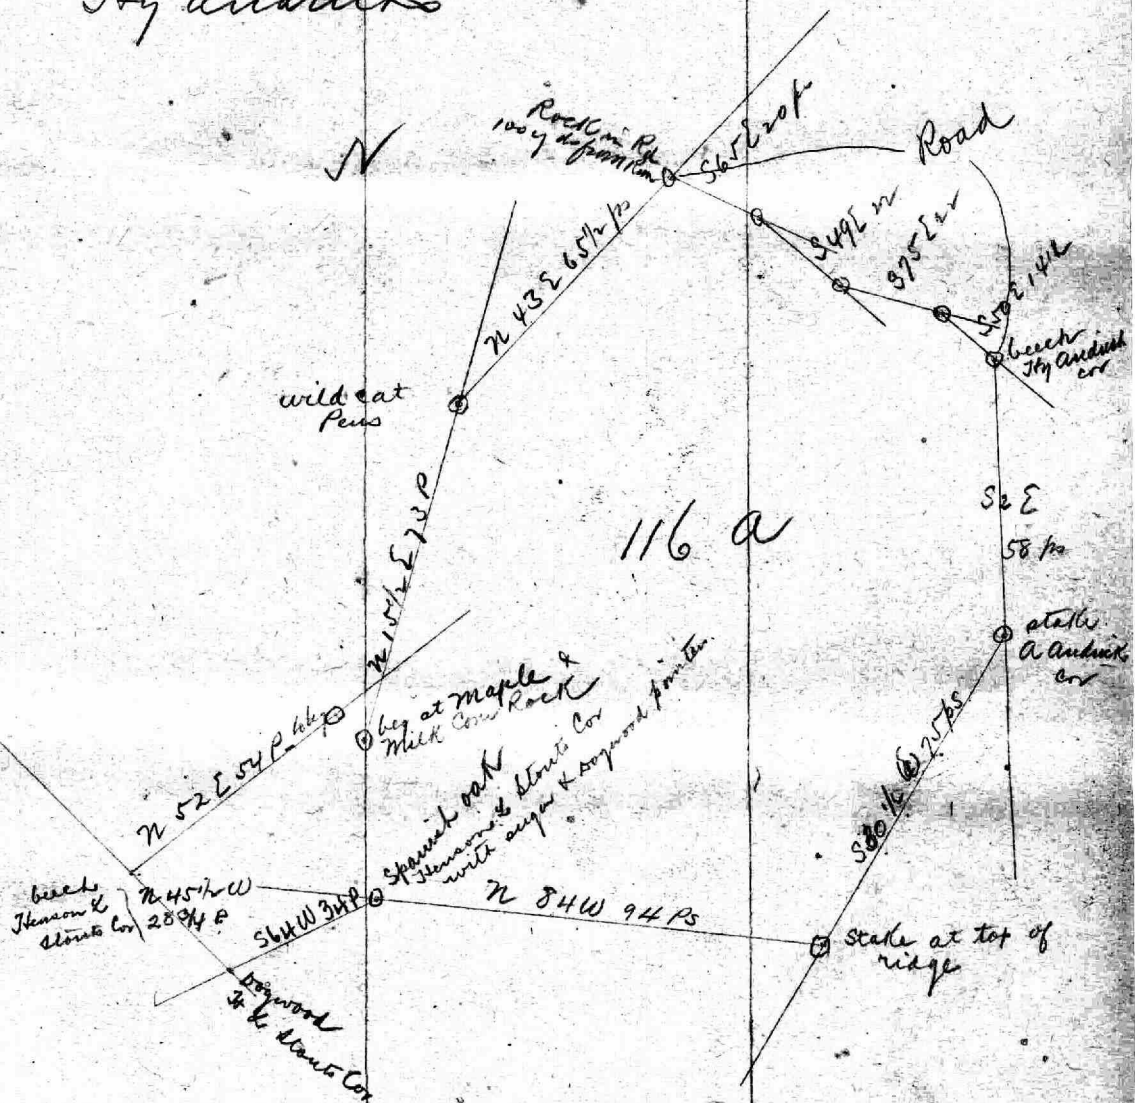 Hy Andricks
N
Rock in Rd
S65E 20 p
Road
N 43 E 65 1/2 ps
S49E 22
S75E 22
S50E 14 1/2
beech
Hy Andrick
cor
wild cat
Pens
N 15 1/2 E 73 P
116 a
S2 E
58 ps
stake
A Andrick
Cor
beg at Maple &
Milk Cow Rock
N 52 E 54 P to beg
Spanish oak
Henson & Stouts Cor
with sugar & Dogwood pointers
S30 1/2 W 75 ps
beech
Henson &
Stouts Cor
N 45 1/2 W
28 3/4 P
S64W 34P
N 84W 94 Ps
Stake at top of
ridge
Dogwood
H & Stouts Cor